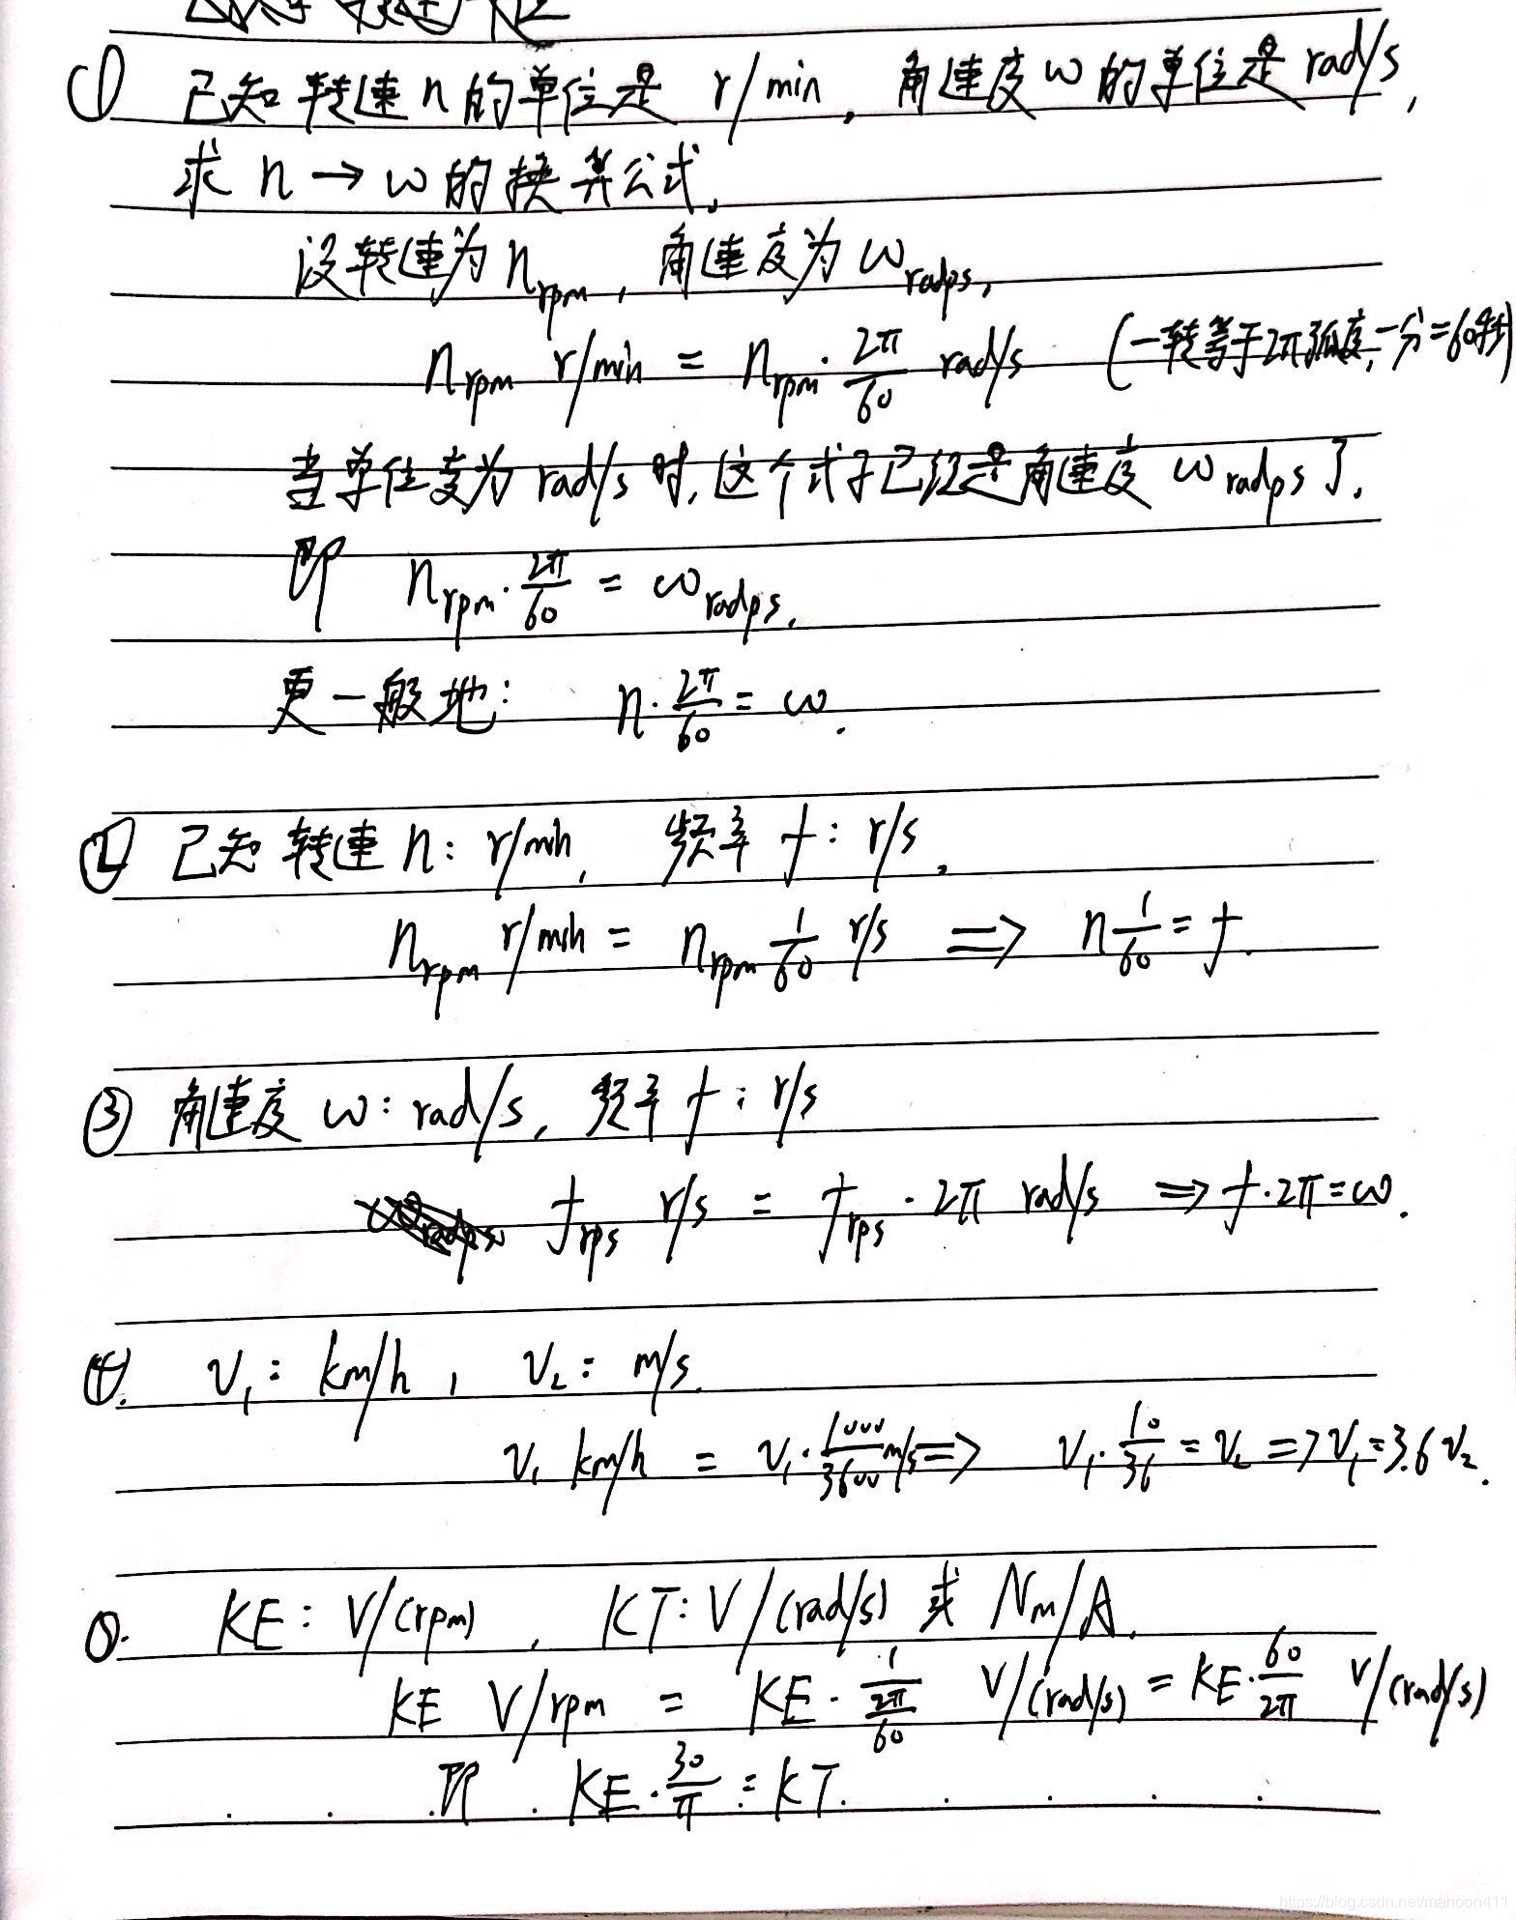 ① 已知转速n的单位是 r/min, 角速度ω的单位是rad/s,
求 n → ω 的换算公式.
设转速为 n_rpm, 角速度为 ω_radps,
n_rpm r/min = n_rpm · 2π/60 rad/s (一转等于2π弧度,一分=60秒)
当单位变为 rad/s 时,这个式子已经是角速度 ω_radps了.
即 n_rpm · 2π/60 = ω_radps.
更一般地: n · 2π/60 = ω.
② 已知 转速 n: r/min, 频率 f: r/s.
n_rpm r/min = n_rpm 1/60 r/s ⇒ n 1/60 = f.
③ 角速度 ω: rad/s, 频率 f: r/s
f_rps r/s = f_rps · 2π rad/s ⇒ f·2π=ω.
④. v₁: km/h, v₂: m/s.
v₁ km/h = v₁ · 1000/3600 m/s ⇒ v₁ · 10/36 = v₂ ⇒ v₁=3.6v₂.
KE: V/(rpm), KT: V/(rad/s) 或 Nm/A.
KE V/rpm = KE · 1/(2π/60) V/(rad/s) = KE · 60/2π V/(rad/s)
即 KE · 30/π = KT.
https://blog.csdn.net/mahoon411